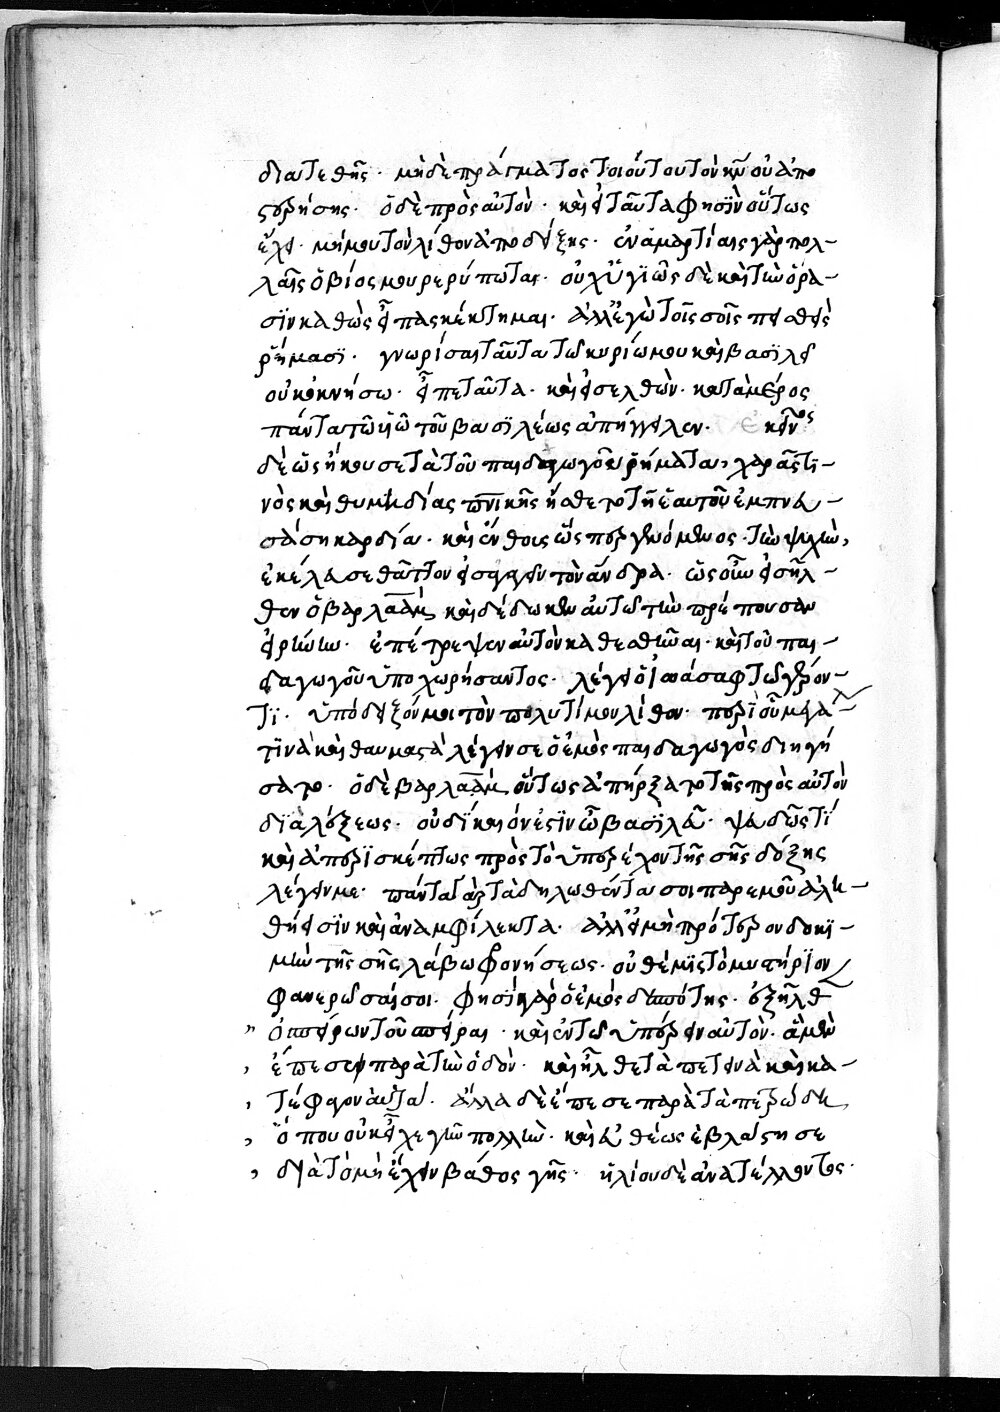 διατεθῆς· μὴδὲ πράγματος τοιούτου τὸν κν̅ οὐ ἀπο
στερήσης· ὁ δὲ πρὸς αὐτὸν· καὶ εἰ ταῦτα φησὶν οὕτως
ἔχει· μή μου τὸν λίθον ἀποδείξης· ἐν ἁμαρτίαις γὰρ πολ-
λαῖς ὁ βίος μου ρερύπωται· οὐχ ὑγιῶς δὲ καὶ τὴν ὅρα-
σιν καθὼς εἶπας κέκτημαι· ἀλλ' ἐγὼ τοῖς σοῖς πειθεὶς
ῥήμασι· γνωρίσαι ταῦτα τῶ κυρίω μου καὶ βασιλεῖ
οὐκ ὀκνήσω· εἶπε ταῦτα· καὶ εἰσελθὼν· κατὰ μέρος
πάντα τῶ υἱῶ τοῦ βασιλέως ἀπήγγειλεν· Ἐκεῖνος
δὲ ὡς ἤκουσε τὰ τοῦ παιδαγωγοῦ ῥήματα, χαρᾶς τι-
νὸς καὶ θυμηδίας πνικῆς ἤσθετο τῆ ἑαυτοῦ ἐμπνευ-
σάση καρδία· καὶ ἔνθους ὥσπερ γενόμενος τὴν ψυχὴν,
ἐκέλευσε θᾶττον εἰσαγαγεῖν τὸν ἄνδρα· ὡς οὖν εἰσῆλ-
θεν ὁ βαρλαὰμ καὶ δέδωκεν αὐτῶ τὴν πρέπουσαν
εἰρήνην· ἐπέτρεψεν αὐτὸν καθεσθῆναι· καὶ τοῦ παι-
δαγωγοῦ ὑποχωρήσαντος· λέγει ὁ ἰωάσαφ τῶ γέρον-
τι· ὑπόδειξόν μοι τὸν πολύτιμον λίθον· περὶ οὗ μεγάλα
τινὰ καὶ θαυμαστὰ λέγειν σε ὁ ἐμὸς παιδαγωγὸς διηγή
σατο· ὁ δὲ βαρλαὰμ οὕτως ἀπήρξατο τῆς πρὸς αὐτὸν
διαλέξεως· οὐ δίκαιόν ἐστιν ὦ βασιλεῦ· ψευδῶς τί
καὶ ἀπερισκέπτως πρὸς τὸ ὑπερέχον τῆς σῆς δόξης
λέγειν με· πάντα γὰρ τὰ δηλωθέντα σοι παρ' ἐμοῦ ἀλη-
θῆ εἰσιν καὶ ἀναμφίλεκτα· ἀλλ' εἰ μὴ πρότερον δοκι-
μὴν τῆς σῆς λάβω φρονήσεως· οὐ θέμις τὸ μυστήριον
φανερῶσαί σοι· φησὶ γὰρ ὁ ἐμὸς δεσπότης· ἐξῆλθεν
ὁ σπείρων τοῦ σπεῖραι· καὶ ἐν τῶ σπείρειν αὐτὸν· ἃ μὲν
ἔπεσεν παρὰ τὴν ὁδὸν· καὶ ἦλθε τὰ πετεινὰ καὶ κα-
τέφαγον αὐτά· ἄλλα δὲ ἔπεσε παρὰ τὰ πετρώδη,
ὅπου οὐκ εἶχε γῆν πολλὴν· καὶ εὐθέως ἐβλάστησε
διὰ τὸ μὴ ἔχειν βάθος γῆς· ἡλίου δὲ ἀνατείλαντος·